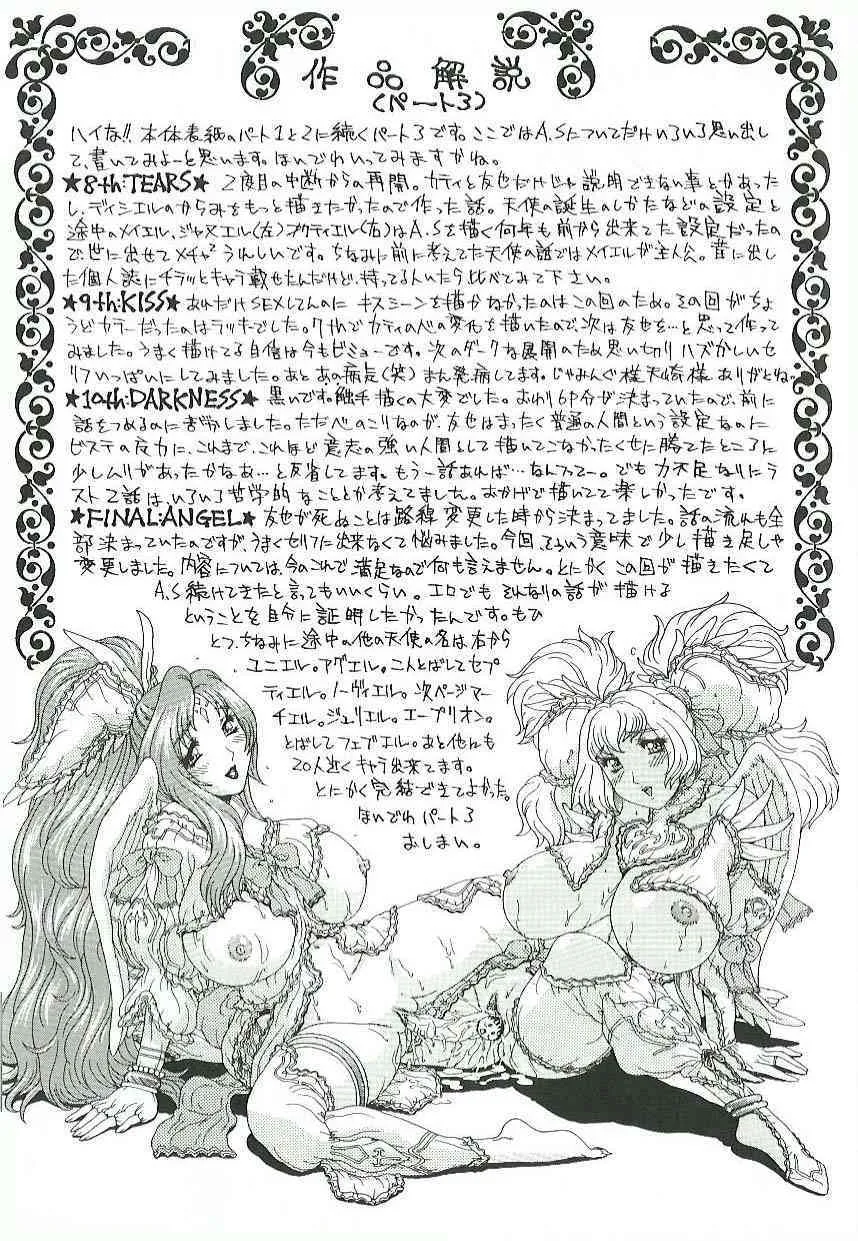 作品解説
(パート3)
ハイな!!本体表紙のパート1と2に続くパート3です。ここではA.Sについてだけいろいろ思い出し
て、書いてみよーと思います。ほいでわいってみますかね。
★8th:TEARS★ 2度目の中断からの再開。カティと友也だけじゃ説明できない事とかあった
し、ディシエルのからみをもっと描きたかったので作った話。天使の誕生のしかたなどの設定と
途中のメイエル、ジャヌエル(左)、オクティエル(右)はA.Sを描く何年も前から出来てた設定だったの
で、世に出せてメチャ²うれしいです。ちなみに前に考えてた天使の話ではメイエルが主人公。昔に出し
た個人誌にチラッとキャラ載せたんだけど、持ってる人いたら比べてみて下さい。
★9th:KISS★ あれだけSEXしてんのに キスシーンを描かなかったのはこの回のため。その回がちょ
うどカラーだったのはラッキーでした。7thでカティの心の変化を描いたので、次は友也を…と思って作って
みました。うまく描けてる自信は今もビミョーです。次のダークな展開のため思い切りハズかしいセ
リフいっぱいにしてみました。あとあの病気(笑)まん発病してます。じゃみんぐ様天崎様ありがとね。
★10th:DARKNESS★ 黒いです。触手描くの大変でした。おわり的分が決まっていたので、前に
話をつめるのにきゅうしました。ただ心のこりなのが、友也はまったく普通の人間という設定なのに
ピステの反力に、これまで、これほど意志の強い人間として描いてこなかったくせに勝てたところに
少しムリがあったかなあ…と反省してます。もう一話あれば…なんつってー。でも力不足なりにラ
スト2話は、いろいろ哲学的なことか考えてました。おかげで描いてて楽しかったです。
★FINAL:ANGEL★ 友也が死ぬことは路線変更した時から決まってました。話の流れも全
部決まっていたのですが、うまくセリフに出来なくて悩みました。今回、そういう意味で少し描き足しや
変更しました。内容については、今のこれで満足なので何も言えません。とにかくこの回が描きたくて
A.S続けてきたと言ってもいいくらい。エロでもそれなりの話が描ける
ということを自分に証明したかったんです。もひ
とつ、ちなみに途中の他の天使の名は右から
ユニエル。アグエル。こんとばしてセプ
ティエル。ノーヴィエル。次ページマー
チエル。ジュリエル。エープリオン。
とばしてフェブエル。あと他にも
20人近くキャラ出来てます。
とにかく完結できてよかった。
ほいでわパート3
おしまい。